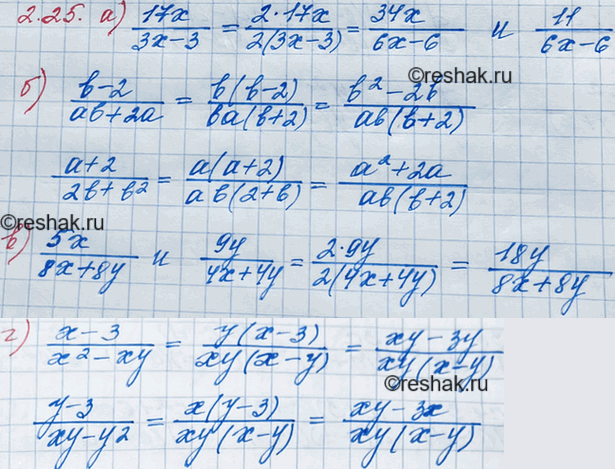 2.25. а) 17x/(3x-3) = 2·17x/2(3x-3) = 34x/(6x-6) и 11/(6x-6)
©reshak.ru
б) (b-2)/(ab+2a) = b(b-2)/ba(b+2) = (b²-2b)/ab(b+2)
(a+2)/(2b+b²) = a(a+2)/ab(2+b) = (a²+2a)/ab(b+2)
©reshak.ru
в) 5x/(8x+8y) и 9y/(4x+4y) = 2·9y/2(4x+4y) = 18y/(8x+8y)
г) (x-3)/(x²-xy) = y(x-3)/xy(x-y) = (xy-3y)/xy(x-y)
©reshak.ru
(y-3)/(xy-y²) = x(y-3)/xy(x-y) = (xy-3x)/xy(x-y)